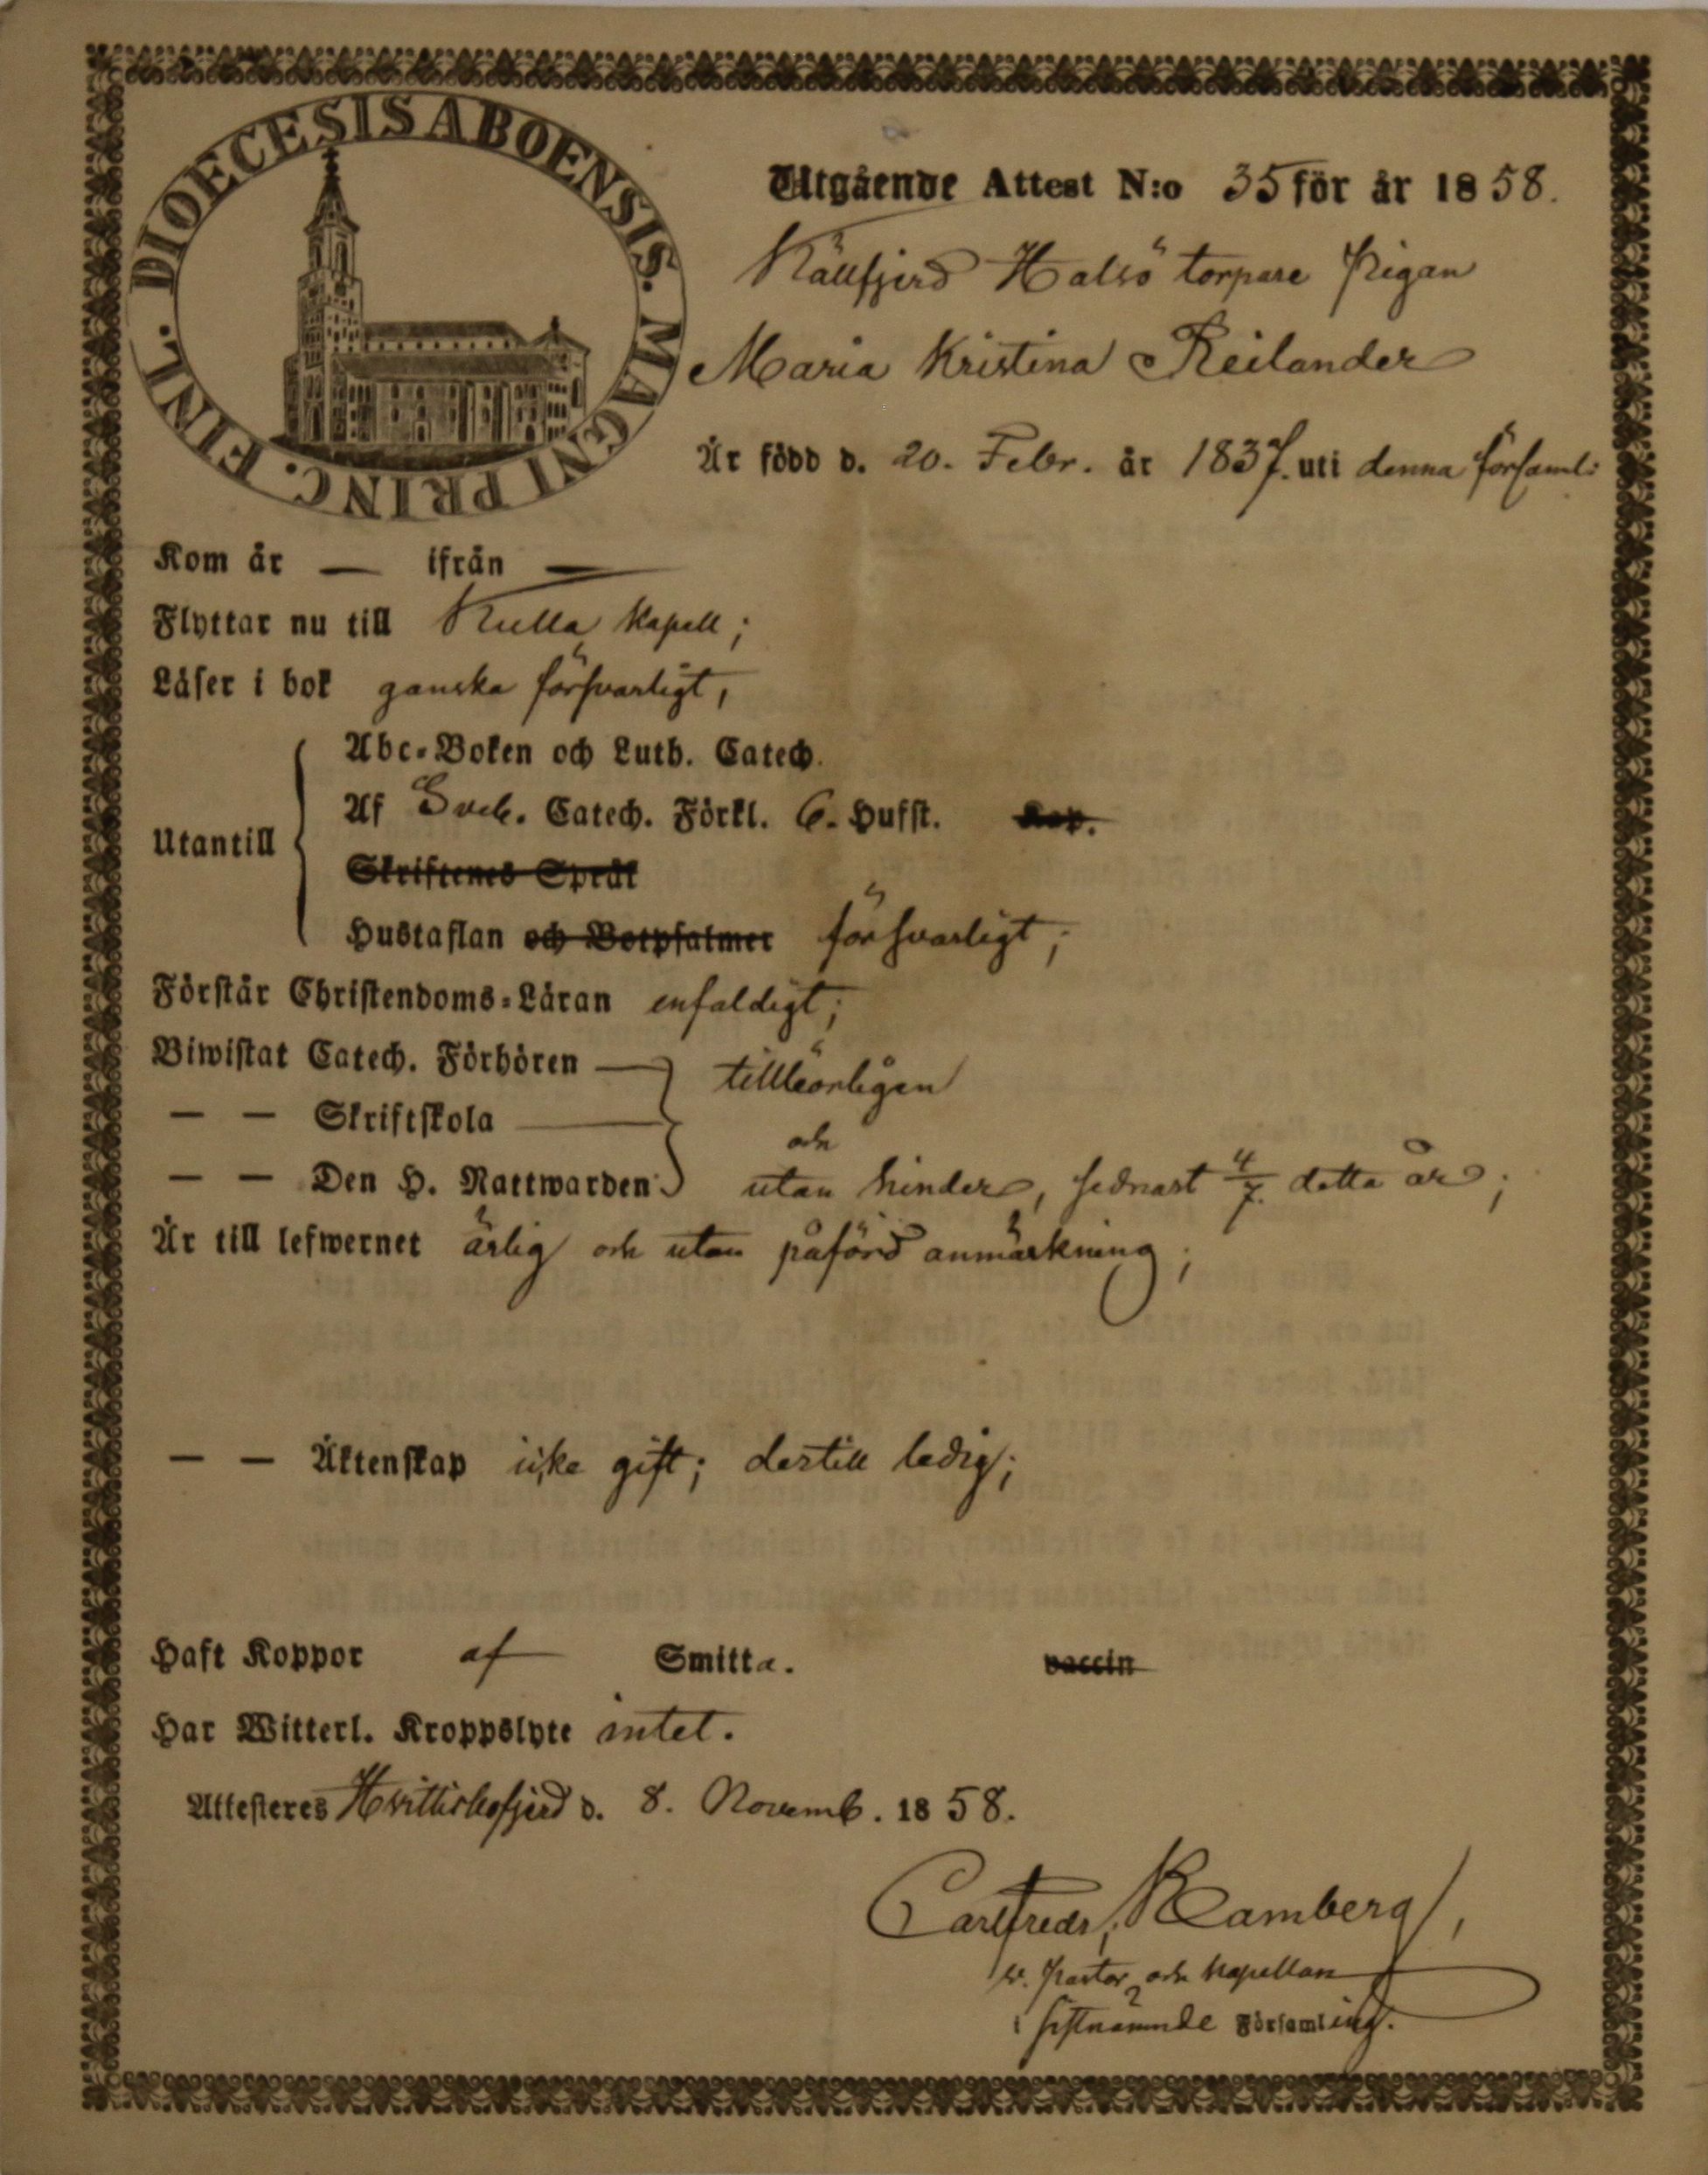 DIOECESIS ABOENSIS. MAGNI PRINC. FINL.
Utgående Attest N:o 35 för år 1858.
Källfjerd Halsö torpare Pigan
Maria Kristina Reilander
Är född d. 20. Febr. år 1837. uti denna församl:
Kom år — ifrån —
Flyttar nu till Kulla Kapell;
Läser i bok ganska försvarligt,
Abc-Boken och Luth. Catech.
Af Sveb. Catech. Förkl. 6. Hufst. Kap.
Utantill
Skriftenes Språk
Hustaflan och Botpsalmer försvarligt;
Förstår Christendoms-Läran enfaldigt;
Biwistat Catech. Förhören — tillbörligen
— — Skriftskola — och
— — Den H. Nattwarden utan hinder, sednast 4/7. detta år;
Är till lefwernet ärlig och utan påförd anmärkning;
— — Äktenskap icke gift; dertill ledig;
Haft Koppor af Smitta. vaccin
Har Witterl. Kroppslyte intet.
Attesteres Hvittisbofjerd d. 8. Novemb. 1858.
Carl Fredr. Ramberg,
v. Pastor och Kapellan
i sistnämnde Församling.